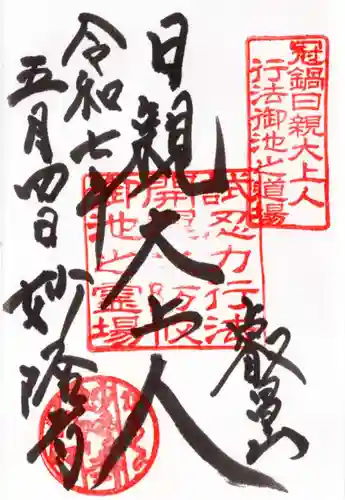 冠鍋日親大上人
行法御池之道場
叡昌山
日親大上人
試忍力行法
御池之霊場
令和七年
五月四日 妙隆寺